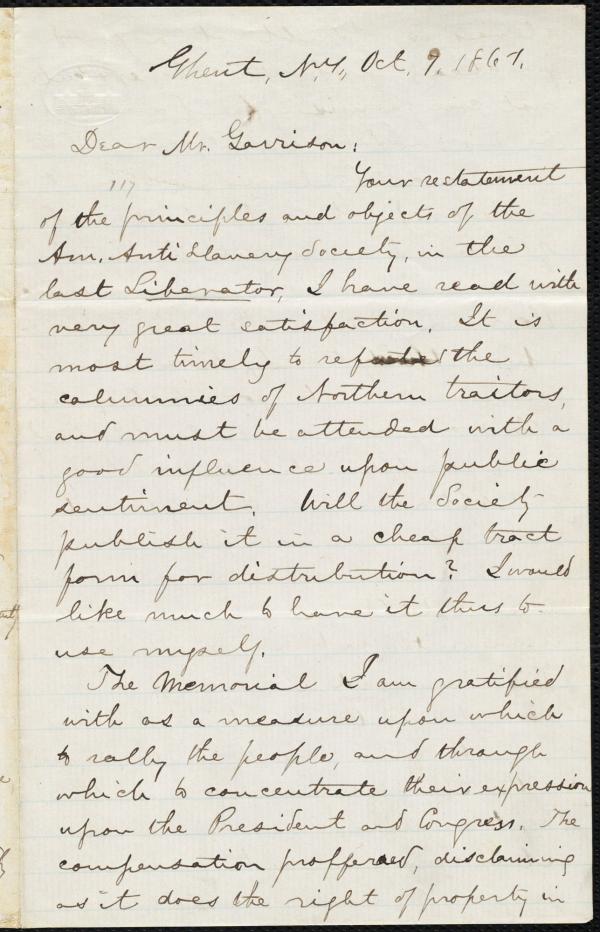 Ghent, N.Y., Oct. 9. 1861.
Dear Mr. Garrison:
Your restatement
of the principles and objects of the
Am. Anti Slavery Society, in the
last Liberator, I have read with
very great satisfaction. It is
most timely to the
calumnies of Northern traitors,
and must be attended with a
good influence upon public
sentiment. Will the Society
publish it in a cheap tract
form for distribution? I would
like much to have it thus to
use myself.
The Memorial I am gratified
with as a measure upon which
to rally the people, and through
which to concentrate their expression
upon the President and Congress. The
compensation proffered, disclaiming
as it does the right of property in